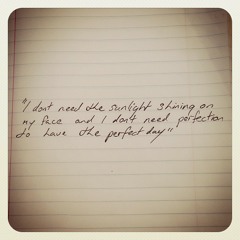 "I dont need the sunlight shining on
my face and I don't need perfection
to have the perfect day"